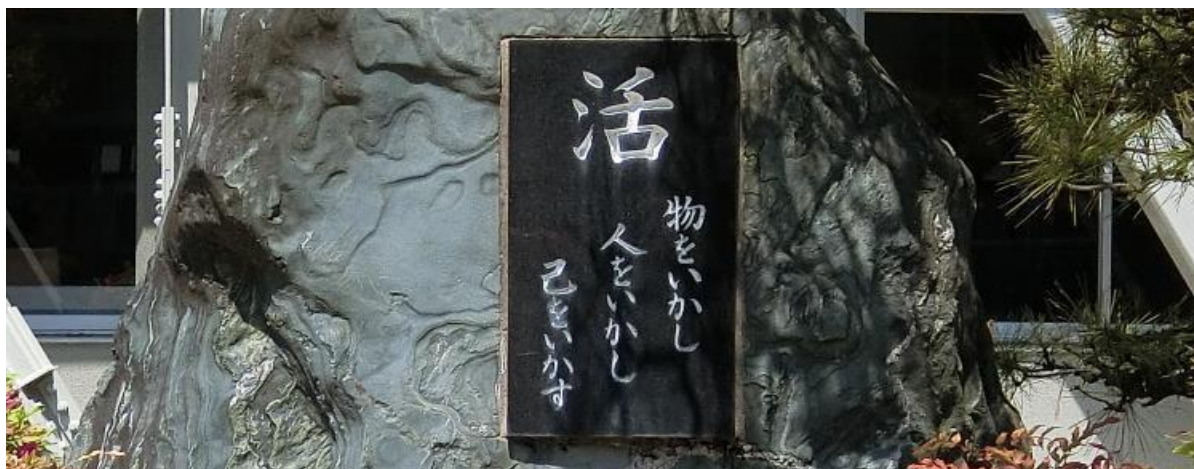 活
物をいかし
人をいかし
己をいかす